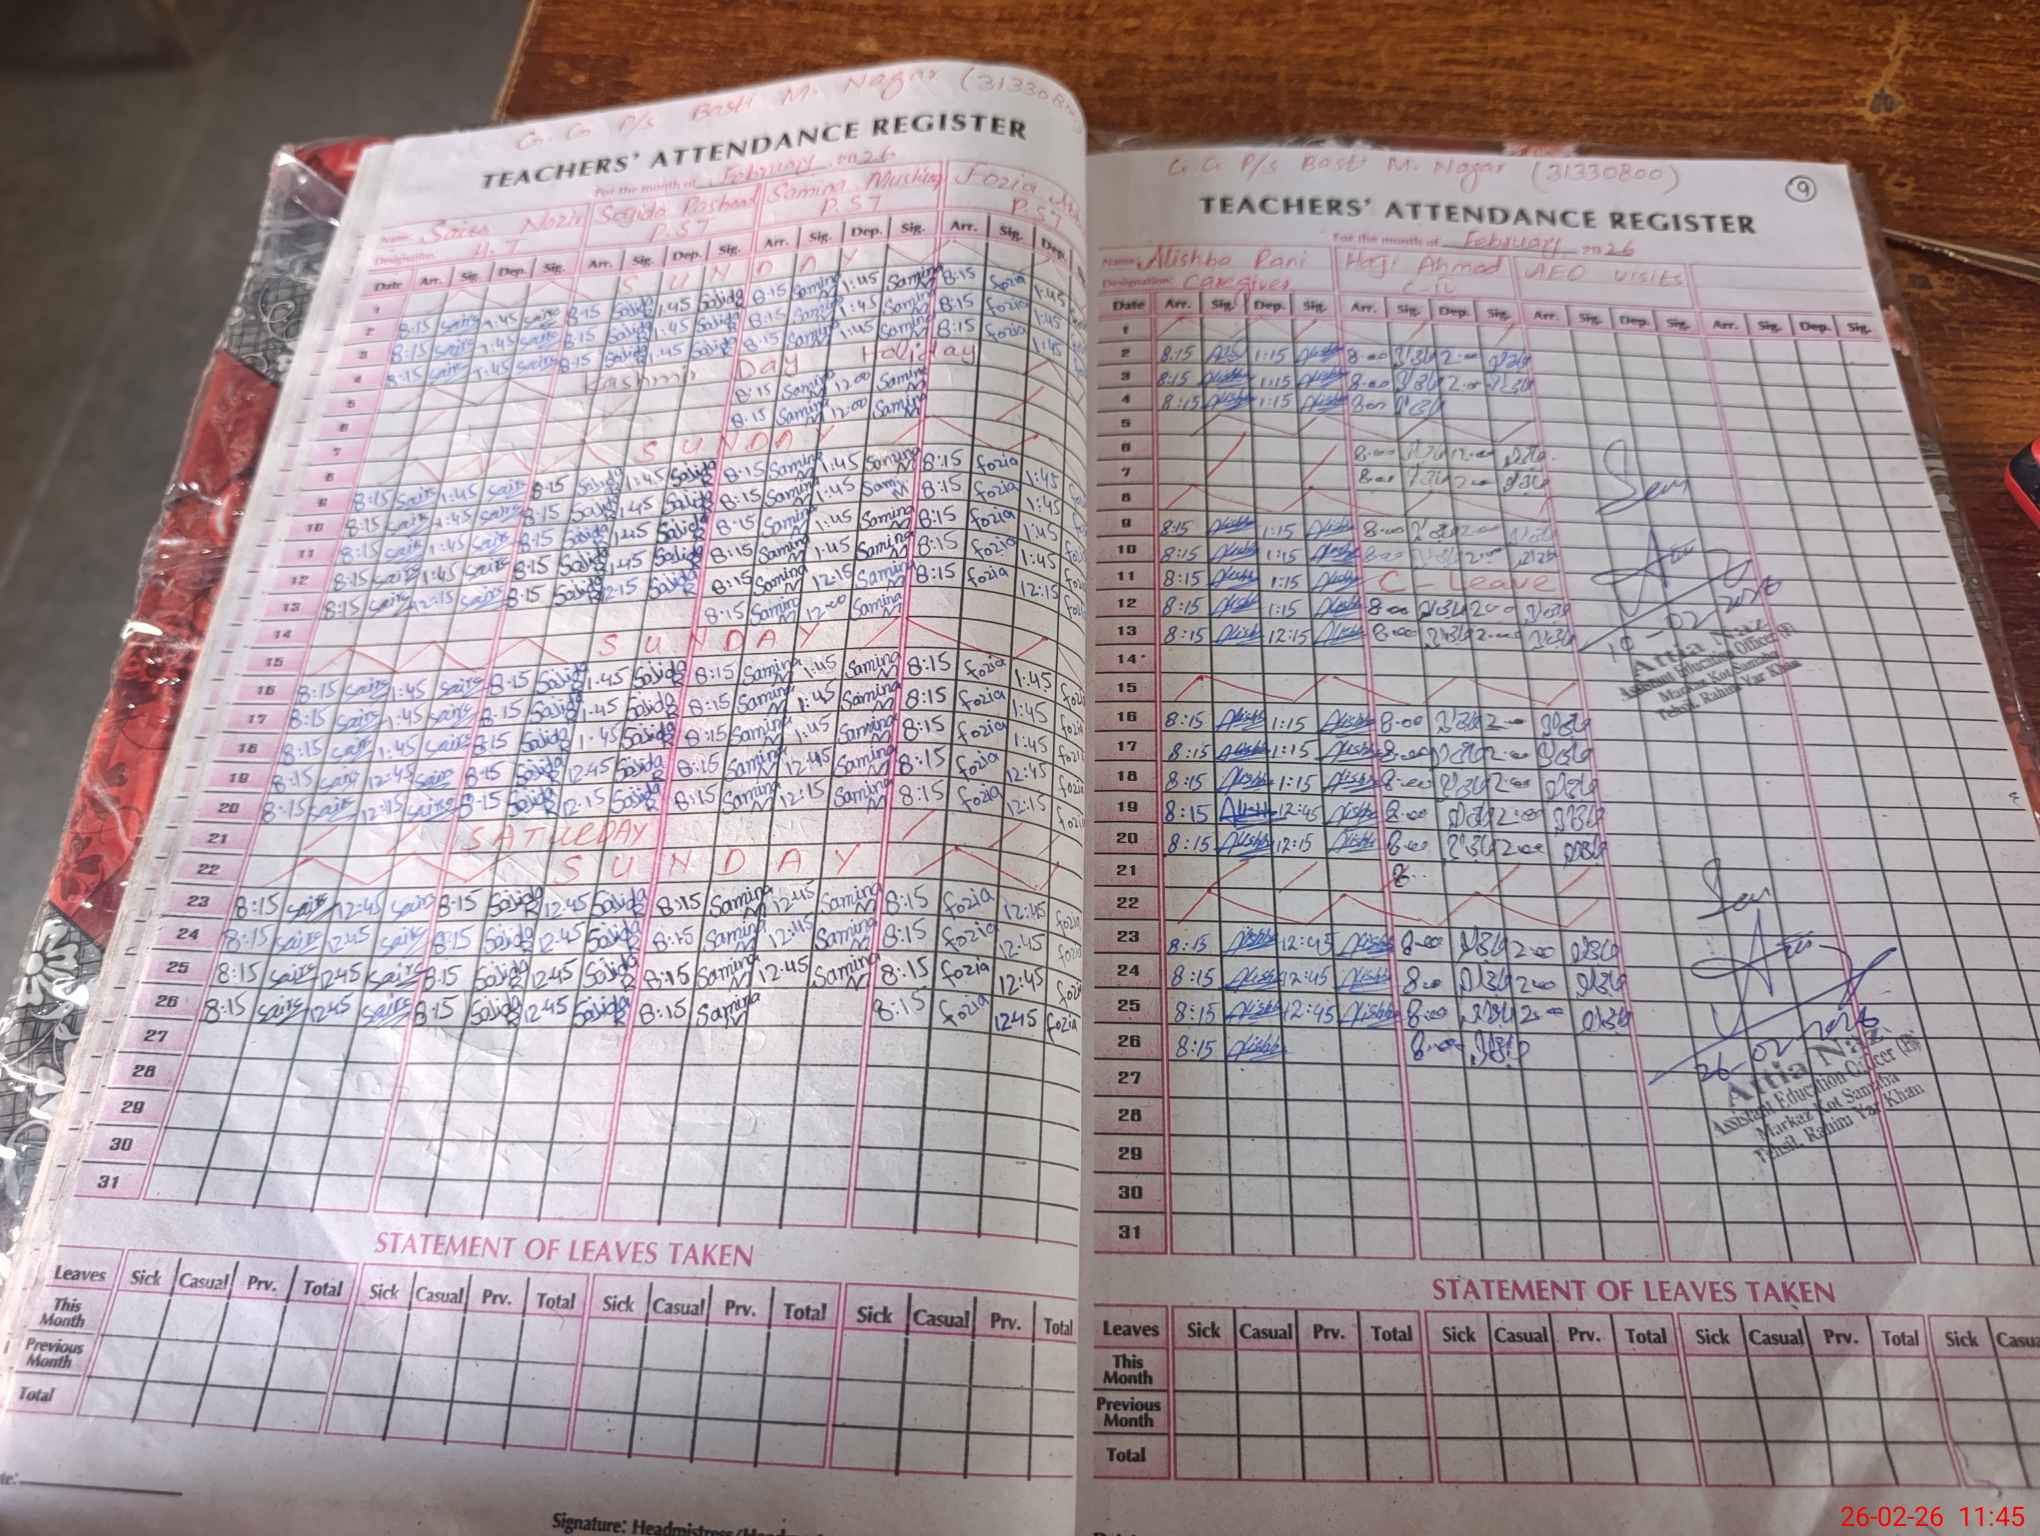 G. G P/s Basti M. Nagar (3133080
TEACHERS' ATTENDANCE REGISTER
For the month of February 2026
Name: Saira Nazir Sajida Rasheed Samina Mushtaq Fozia
Designation: H. T P.ST P.ST P.ST
Date Arr. Sig. Dep. Sig. Arr. Sig. Dep. Sig. Arr. Sig. Dep. Sig. Arr. Sig. Dep.
1 S U N D A Y
2 8:15 saira 1:45 saira 8:15 Sajida 1:45 Sajida 8:15 Samina 1:45 Samina 8:15 fozia 1:45
3 8:15 saira 1:45 saira 8:15 Sajida 1:45 Sajida 8:15 Samina 1:45 Samina 8:15 fozia 1:45
4 8:15 saira 1:45 saira 8:15 Sajida 1:45 Sajida 8:15 Samina 1:45 Samina 8:15 fozia 1:45
5 Kashmir Day Holiday
6 8:15 Samina 12:00 Samina
7 8:15 Samina 12:00 Samina
8 S U N D A Y
9 8:15 saira 1:45 saira 8:15 Sajida 1:45 Sajida 8:15 Samina 1:45 Samina 8:15 fozia 1:45
10 8:15 saira 1:45 saira 8:15 Sajida 1:45 Sajida 8:15 Samina 1:45 Samina 8:15 fozia 1:45
11 8:15 saira 1:45 saira 8:15 Sajida 1:45 Sajida 8:15 Samina 1:45 Samina 8:15 fozia 1:45
12 8:15 saira 1:45 saira 8:15 Sajida 1:45 Sajida 8:15 Samina 1:45 Samina 8:15 fozia 1:45
13 8:15 saira 12:15 saira 8:15 Sajida 12:15 Sajida 8:15 Samina 12:15 Samina 8:15 fozia 12:15 fozia
14 8:15 Samina 12:00 Samina
15 S U N D A Y
16 8:15 saira 1:45 saira 8:15 Sajida 1:45 Sajida 8:15 Samina 1:45 Samina 8:15 fozia 1:45 fozia
17 8:15 saira 1:45 saira 8:15 Sajida 1:45 Sajida 8:15 Samina 1:45 Samina 8:15 fozia 1:45 fozia
18 8:15 saira 1:45 saira 8:15 Sajida 1:45 Sajida 8:15 Samina 1:45 Samina 8:15 fozia 1:45 fozia
19 8:15 saira 12:45 saira 8:15 Sajida 12:45 Sajida 8:15 Samina 12:45 Samina 8:15 fozia 12:45 fozia
20 8:15 saira 12:15 saira 8:15 Sajida 12:15 Sajida 8:15 Samina 12:15 Samina 8:15 fozia 12:15 fozia
21 SATURDAY
22 S U N D A Y
23 8:15 saira 12:45 saira 8:15 Sajida 12:45 Sajida 8:15 Samina 12:45 Samina 8:15 fozia 12:45 fozia
24 8:15 saira 12:45 saira 8:15 Sajida 12:45 Sajida 8:15 Samina 12:45 Samina 8:15 fozia 12:45 fozia
25 8:15 saira 12:45 saira 8:15 Sajida 12:45 Sajida 8:15 Samina 12:45 Samina 8:15 fozia 12:45 fozia
26 8:15 saira 12:45 saira 8:15 Sajida 12:45 Sajida 8:15 Samina 8:15 fozia 12:45 fozia
27
28
29
30
31
STATEMENT OF LEAVES TAKEN
Leaves Sick Casual Prv. Total Sick Casual Prv. Total Sick Casual Prv. Total Sick Casual Prv. Total
This Month
Previous Month
Total
Signature: Headmistress
G G P/s Basti M. Nagar (31330800)
9
TEACHERS' ATTENDANCE REGISTER
For the month of February 2026
Name: Alishba Rani Haji Ahmad AEO visits
Designation: Caregiver C-IV
Date Arr. Sig. Dep. Sig. Arr. Sig. Dep. Sig. Arr. Sig. Dep. Sig. Arr. Sig. Dep. Sig.
1
2 8:15 Alishba 1:15 Alishba 8:00 2:00
3 8:15 Alishba 1:15 Alishba 8:00 2:00
4 8:15 Alishba 1:15 Alishba 8:00
5
6 8:00 12:00
7 8:00 2:00
8
9 8:15 Alishba 1:15 Alishba 8:00 2:00
10 8:15 Alishba 1:15 Alishba 8:00 2:00
11 8:15 Alishba 1:15 Alishba C - Leave
12 8:15 Alishba 1:15 Alishba 8:00 2:00
13 8:15 Alishba 12:15 Alishba 8:00 2:00
14
15
16 8:15 Alishba 1:15 Alishba 8:00 2:00
17 8:15 Alishba 1:15 Alishba 8:00 2:00
18 8:15 Alishba 1:15 Alishba 8:00 2:00
19 8:15 Alishba 12:45 Alishba 8:00 2:00
20 8:15 Alishba 12:15 Alishba 8:00 2:00
21 8
22
23 8:15 Alishba 12:45 Alishba 8:00 2:00
24 8:15 Alishba 12:45 Alishba 8:00 2:00
25 8:15 Alishba 12:45 Alishba 8:00 2:00
26 8:15 Alishba 8:00
27
28
29
30
31
Seen
10-02-2026
Attia Naz
Assistant Education Officer (F)
Markaz Kot Samaba
Tehsil. Rahim Yar Khan
Seen
26-02-2026
Attia Naz
Assistant Education Officer (F)
Markaz Kot Samaba
Tehsil. Rahim Yar Khan
STATEMENT OF LEAVES TAKEN
Leaves Sick Casual Prv. Total Sick Casual Prv. Total Sick Casual Prv. Total Sick Casua
This Month
Previous Month
Total
26-02-26 11:45